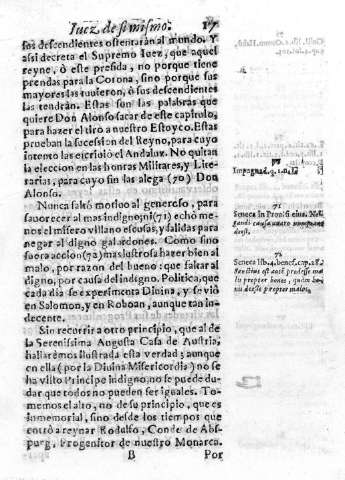 Iuez de si mismo. 17
sus descendientes ostentaràn al mundo. Y
assi decreta el Supremo Iuez, que aquel
reyne, ò este presida, no porque tiene
prendas para la Corona, sino porque sus
mayores las tuuieron, ò sus descendientes
las tendràn. Estas son las palabras que
quiere Don Alonso sacar de este capitulo,
para hazer el tiro a nuestro Estoyco. Estas
prueban la sucession del Reyno, para cuyo
intento las escriuiò el Andaluz. No quitan
la eleccion en las honras Militares, y Lite-
rarias, para cuyo fin las alega (70) Don
Alonso.
Nunca faltò motiuo al generoso, para
fauorecer al mas indigno; ni (71) echò me-
nos el misero villano escusas, y salidas para
negar al digno galardones. Como sino
fuera accion (72) mas lustrosa hazer bien al
malo, por razon del bueno: que faltar al
digno, por causa del indigno. Politica, que
cada dia se experimenta Diuina, y se viò
en Salomon, y en Roboan, aunque tan in-
decente.
Sin recurrir a otro principio, que al de
la Serenissima Augusta Casa de Austria,
hallarèmos ilustrada esta verdad; aunque
en ella (por la Diuina Misericordia) no se
ha visto Principe indigno, no se puede du-
dar que todos no pueden ser iguales. To-
memos el alto, no de su principio, que es
inmemorial, sino desde los tiempos que
entrò a reynar Rodulfo, Conde de Abs-
purg, Progenitor de nuestro Monarca.
B Por
70
Impugnad. q. 1. n. 4
71
Seneca in Prouisi eius. Ne
gandi causa auaro nunquam
deest.
72
Seneca lib. 4. benef. cap. 28.
Sanctius est enim prodesse ma
lis propter bonos, quam bo-
nis deesse propter malos.